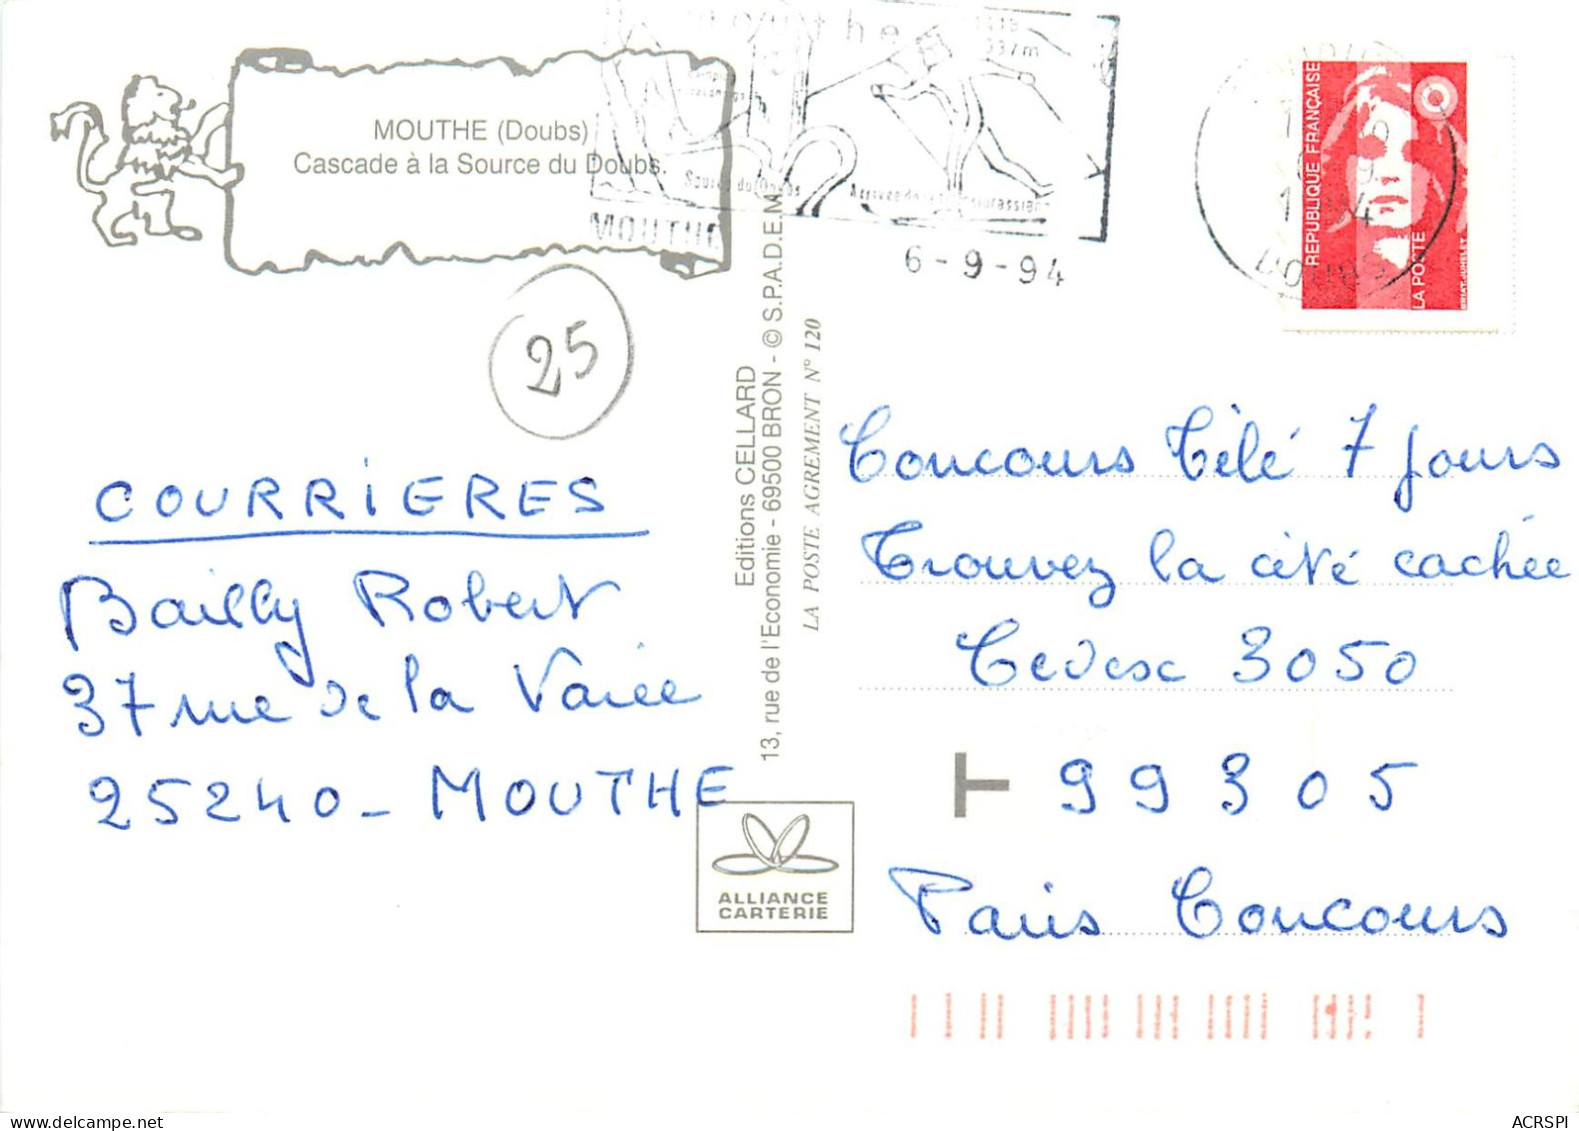 MOUTHE (Doubs)
Cascade à la Source du Doubs.
Mouthe
937m
Source du Doubs
Arrivée de la Transjurassienne
MOUTHE
6-9-94
DOUBS
RÉPUBLIQUE FRANÇAISE
LA POSTE
BRIAT-JUMELET
25
COURRIERES
Bailly Robert
37 rue de la Varée
25240 - MOUTHE
Editions CELLARD
13, rue de l'Economie - 69500 BRON - © S.P.A.D.E.M.
LA POSTE AGREMENT N° 120
ALLIANCE
CARTERIE
Concours Télé 7 Jours
Trouvez la cité cachée
Cedex 3050
T 99305
Paris Concours
ACRSPI